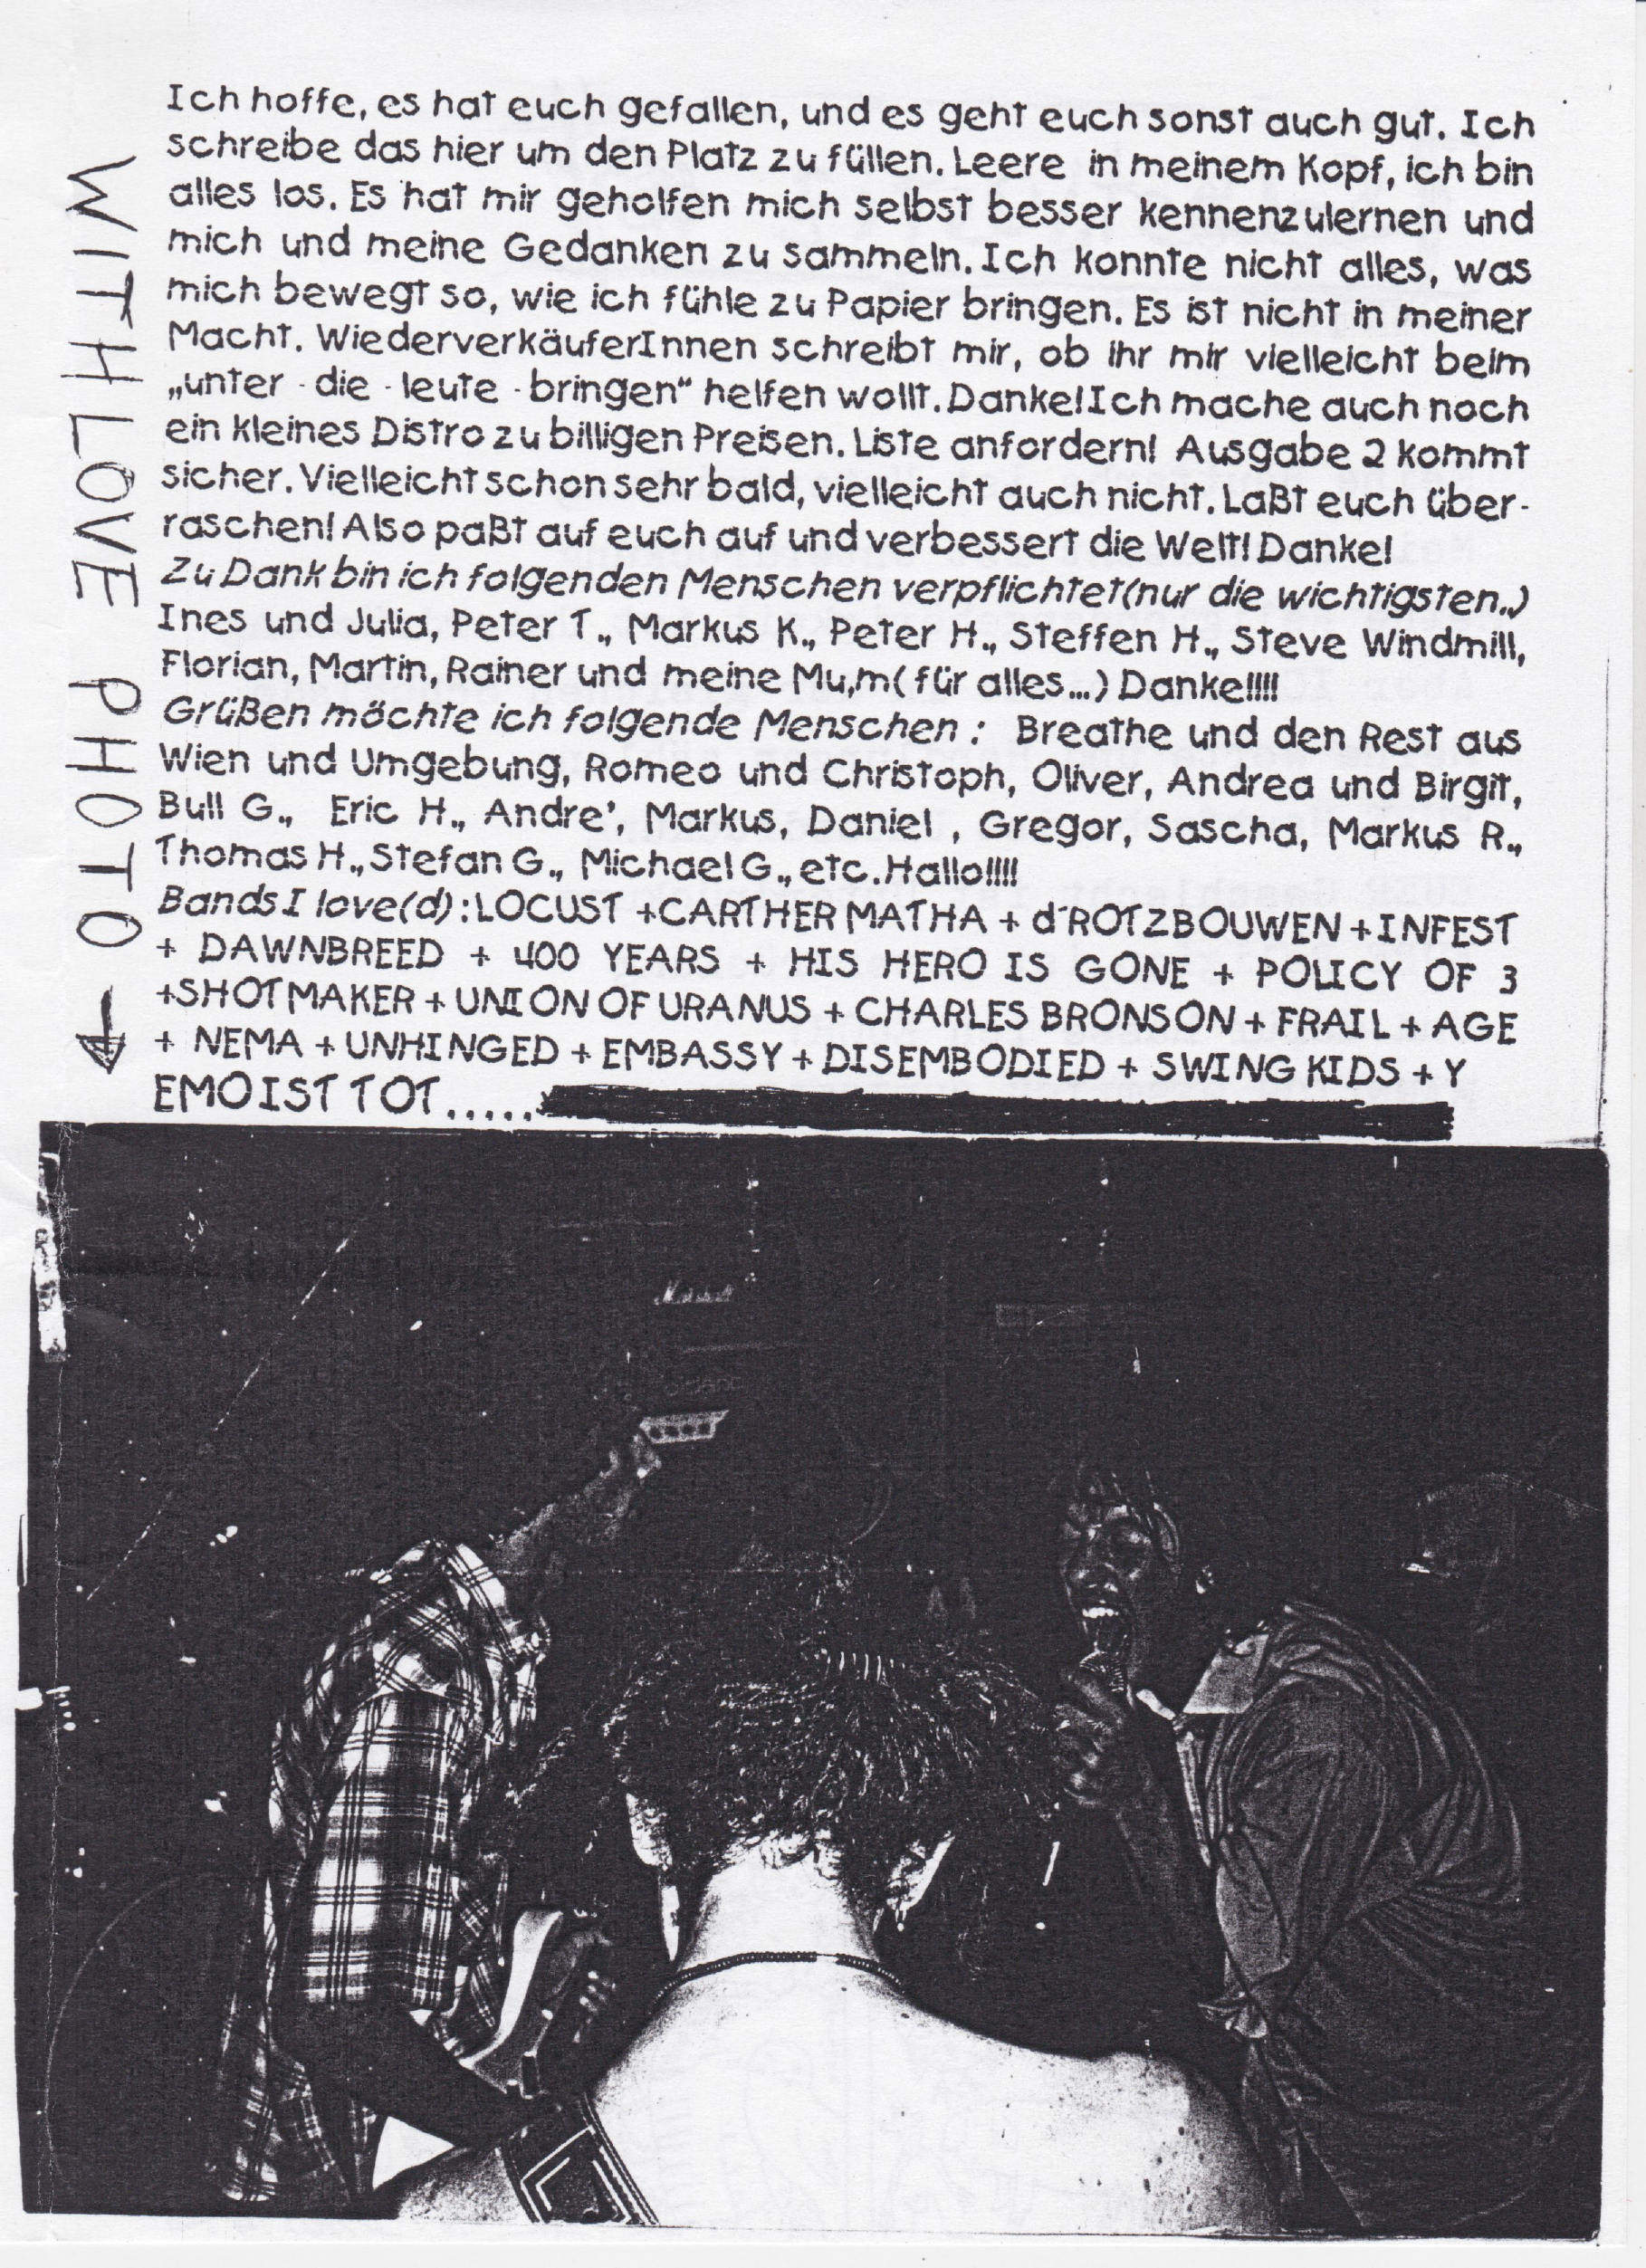 Ich hoffe, es hat euch gefallen, und es geht euch sonst auch gut. Ich
schreibe das hier um den Platz zu füllen. Leere in meinem Kopf, ich bin
alles los. Es hat mir geholfen mich selbst besser kennenzulernen und
mich und meine Gedanken zu sammeln. Ich konnte nicht alles, was
mich bewegt so, wie ich fühle zu Papier bringen. Es ist nicht in meiner
Macht. WiederverkäuferInnen schreibt mir, ob ihr mir vielleicht beim
„unter - die - leute - bringen“ helfen wollt. Danke! Ich mache auch noch
ein kleines Distro zu billigen Preisen. Liste anfordern! Ausgabe 2 kommt
sicher. Vielleicht schon sehr bald, vielleicht auch nicht. Laßt euch über-
raschen! Also paßt auf euch auf und verbessert die Welt! Danke!
Zu Dank bin ich folgenden Menschen verpflichtet(nur die wichtigsten..)
Ines und Julia, Peter T., Markus K., Peter H., Steffen H., Steve Windmill,
Florian, Martin, Rainer und meine Mu,m( für alles...) Danke!!!!
Grüßen möchte ich folgende Menschen : Breathe und den Rest aus
Wien und Umgebung, Romeo und Christoph, Oliver, Andrea und Birgit,
Bull G., Eric H., Andre', Markus, Daniel , Gregor, Sascha, Markus R.,
Thomas H., Stefan G., Michael G., etc. Hallo!!!!
Bands I love(d) : LOCUST + CARTHER MATHA + d´ROTZBOUWEN + INFEST
+ DAWNBREED + 400 YEARS + HIS HERO IS GONE + POLICY OF 3
+SHOTMAKER + UNION OF URANUS + CHARLES BRONSON + FRAIL + AGE
+ NEMA + UNHINGED + EMBASSY + DISEMBODIED + SWING KIDS + Y
EMO IST TOT.....
WITH LOVE PHOTO
Marshall